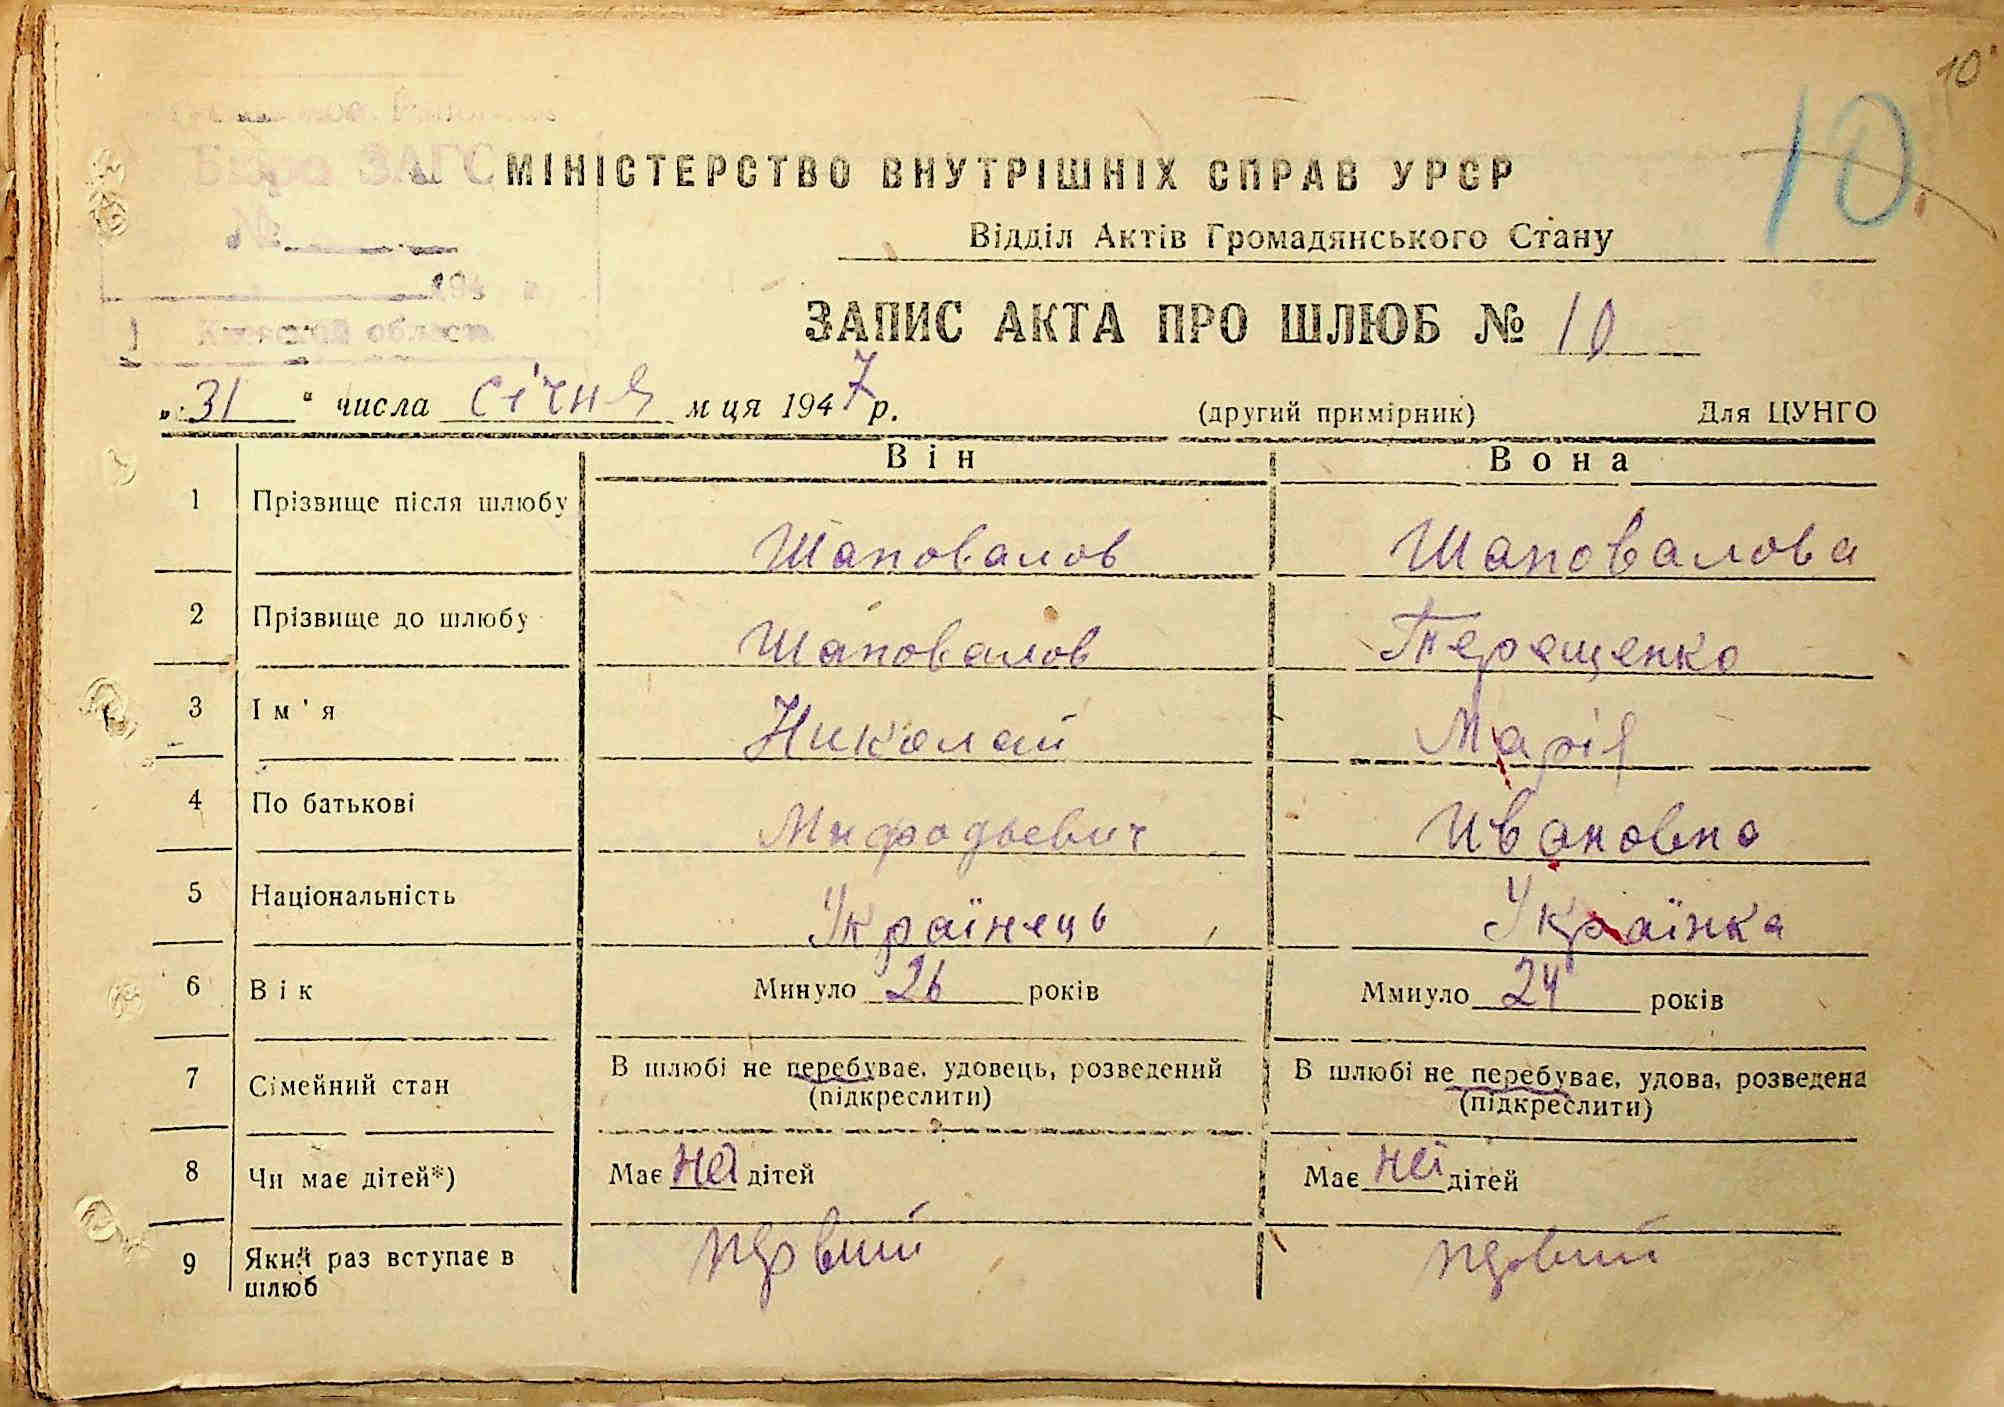 10
10
Бюро ЗАГС
МІНІСТЕРСТВО ВНУТРІШНІХ СПРАВ УРСР
№
Відділ Актів Громадянського Стану
194
області
ЗАПИС АКТА ПРО ШЛЮБ № 10
„31" числа січня м ця 1947 р. (другий примірник) Для ЦУНГО
Він Вона
1 Прізвище після шлюбу Шаповалов Шаповалова
2 Прізвище до шлюбу Шаповалов Терещенко
3 Ім'я Николай Марія
4 По батькові Мифодьевич Ивановна
5 Національність Українець Українка
6 Вік Минуло 26 років Ммнуло 24 років
7 Сімейний стан В шлюбі не перебуває, удовець, розведений В шлюбі не перебуває, удова, розведена
(підкреслити) (підкреслити)
8 Чи має дітей*) Має дітей Має дітей
9 Який раз вступає в первий первий
шлюб